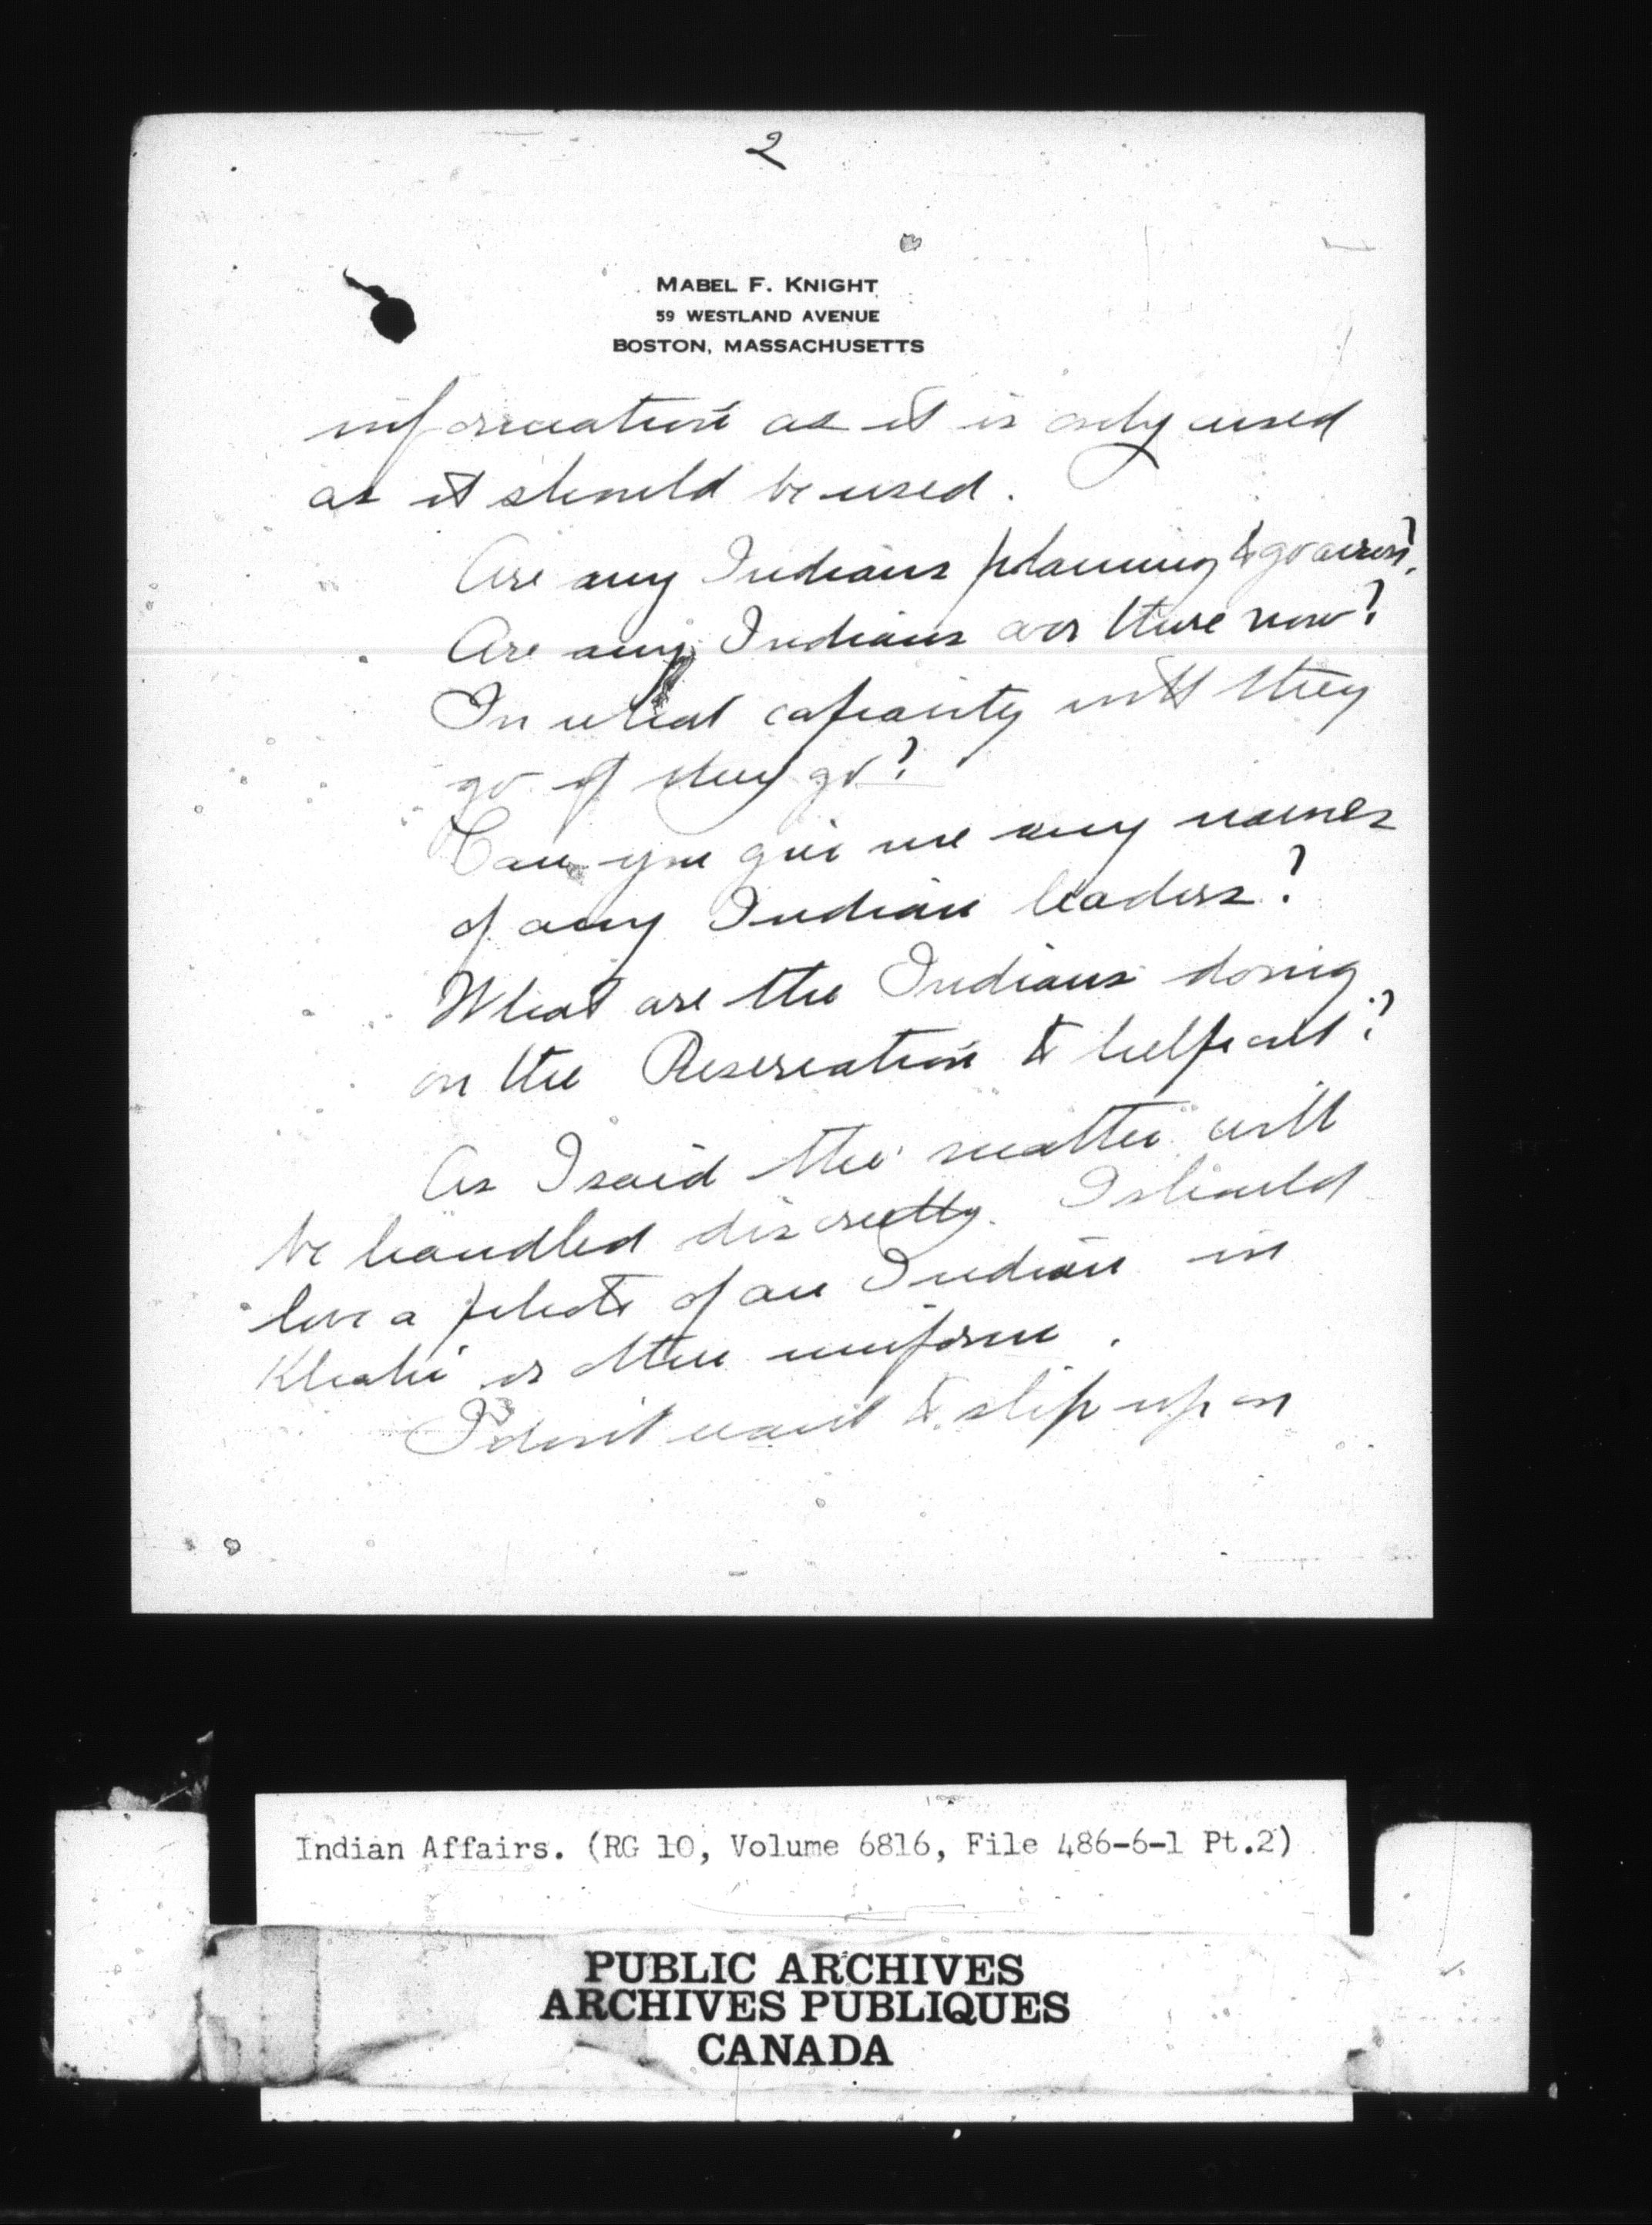 2
MABEL F. KNIGHT
59 WESTLAND AVENUE
BOSTON, MASSACHUSETTS
information as it is only used
as it should be used.
Are any Indians planning to go across?
Are any Indians over there now?
In what capacity will they
go if they go?
Can you give me any names
of any Indian leaders?
What are the Indians doing
on the Reservation to help out?
As I said the matter will
be handled discreetly. I should
love a photo of an Indian in
Khaki or other uniform.
I don't want to slip up on
Indian Affairs. (RG 10, Volume 6816, File 486-6-1 Pt.2)
PUBLIC ARCHIVES
ARCHIVES PUBLIQUES
CANADA